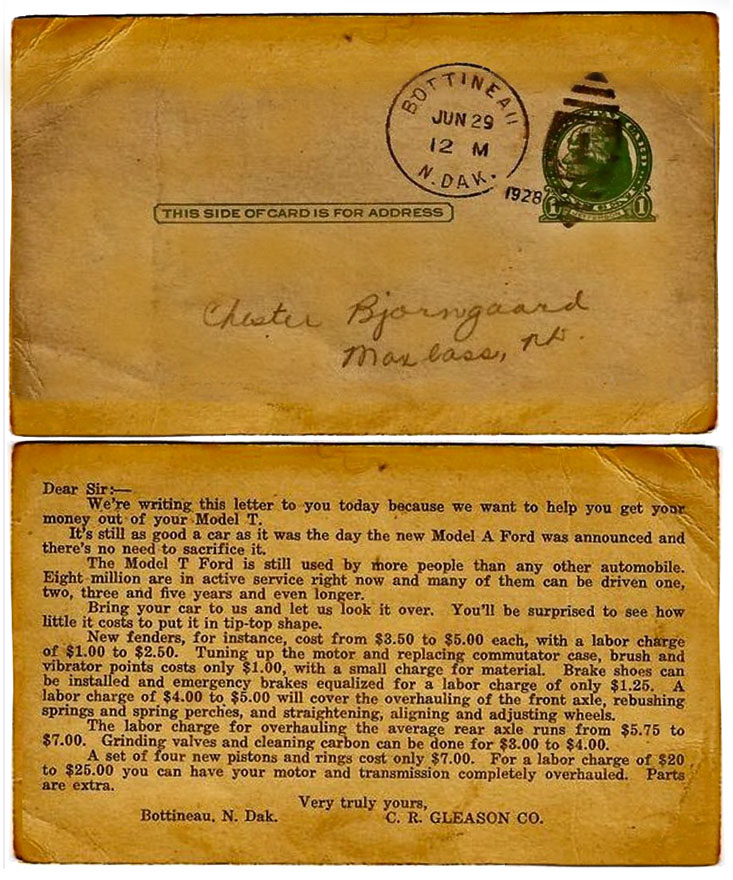 BOTTINEAU
JUN 29
12 M
N. DAK.
1928
1 JEFFERSON 1
THIS SIDE OF CARD IS FOR ADDRESS
Chester Bjorngaard
Maxbass, ND.
Dear Sir:—
We're writing this letter to you today because we want to help you get your
money out of your Model T.
It's still as good a car as it was the day the new Model A Ford was announced and
there's no need to sacrifice it.
The Model T Ford is still used by more people than any other automobile.
Eight million are in active service right now and many of them can be driven one,
two, three and five years and even longer.
Bring your car to us and let us look it over. You'll be surprised to see how
little it costs to put it in tip-top shape.
New fenders, for instance, cost from $3.50 to $5.00 each, with a labor charge
of $1.00 to $2.50. Tuning up the motor and replacing commutator case, brush and
vibrator points costs only $1.00, with a small charge for material. Brake shoes can
be installed and emergency brakes equalized for a labor charge of only $1.25. A
labor charge of $4.00 to $5.00 will cover the overhauling of the front axle, rebushing
springs and spring perches, and straightening, aligning and adjusting wheels.
The labor charge for overhauling the average rear axle runs from $5.75 to
$7.00. Grinding valves and cleaning carbon can be done for $3.00 to $4.00.
A set of four new pistons and rings cost only $7.00. For a labor charge of $20
to $25.00 you can have your motor and transmission completely overhauled. Parts
are extra.
Very truly yours,
Bottineau, N. Dak. C. R. GLEASON CO.